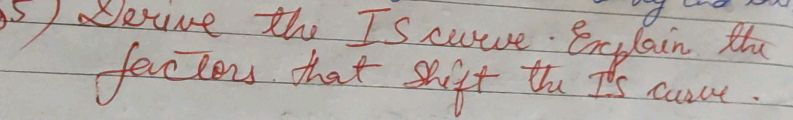 5) Derive the IS curve. Explain the
factors that shift the IS curve.